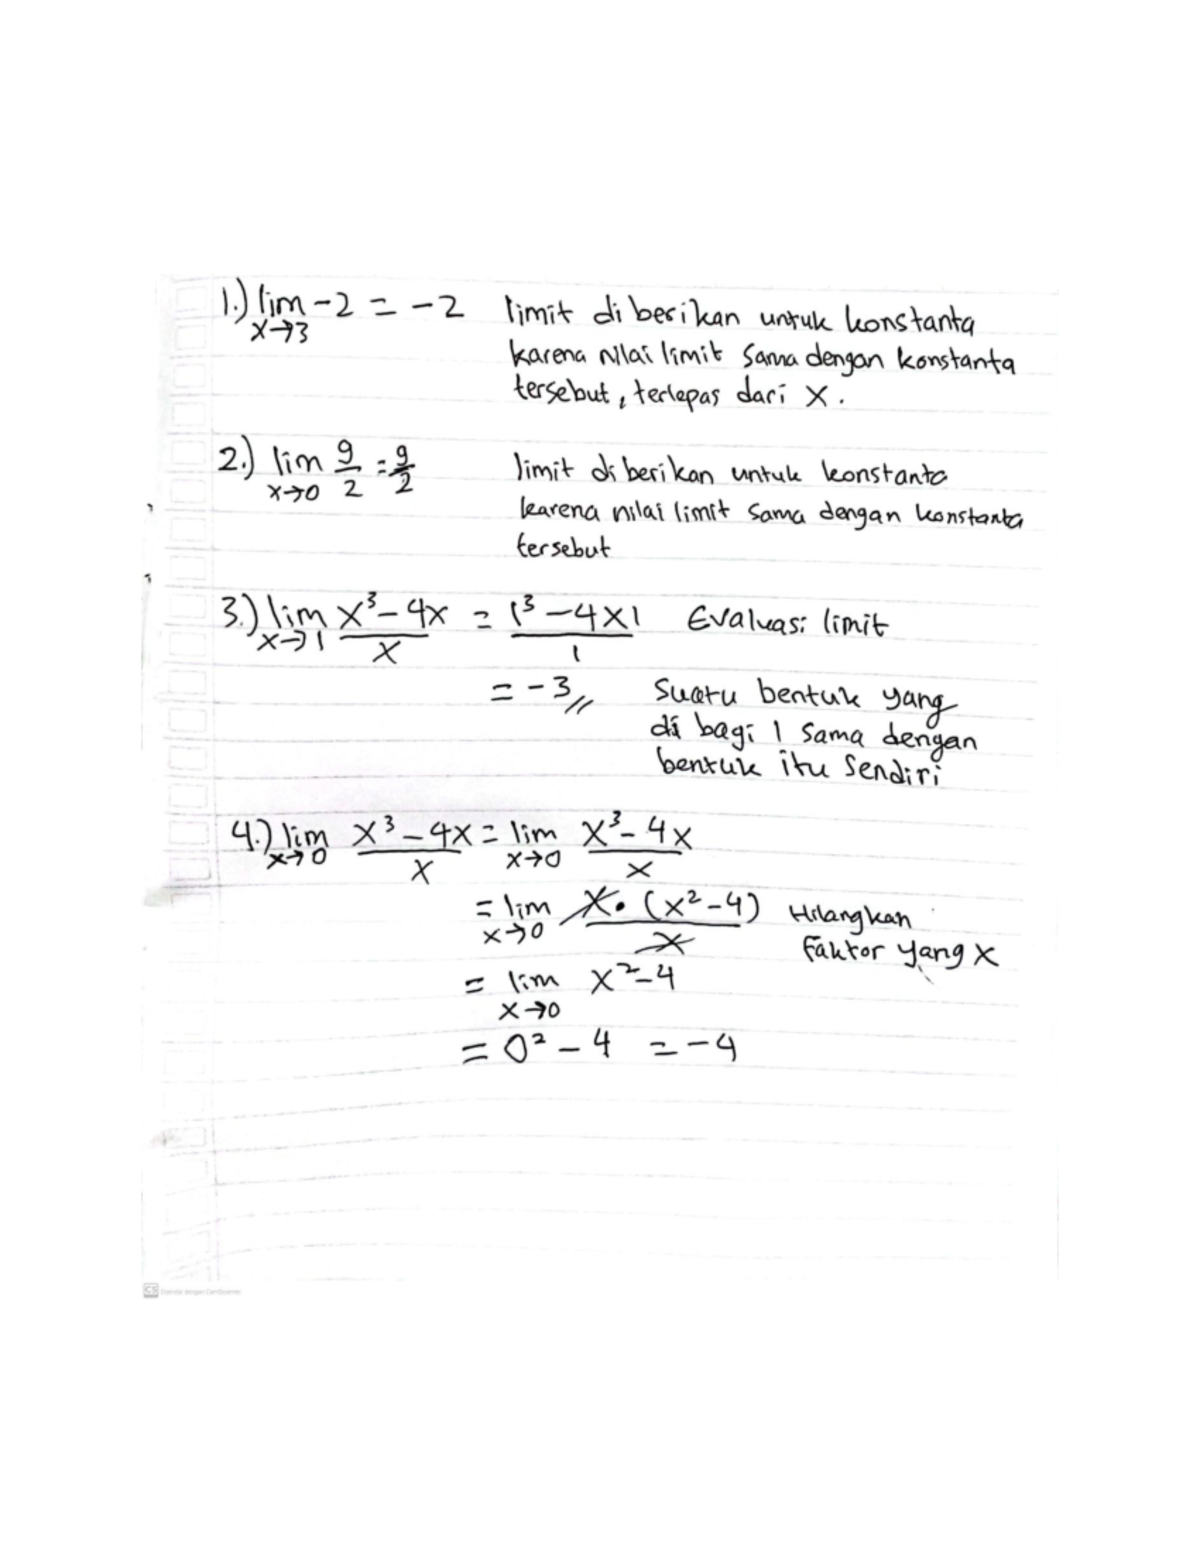 1.) lim -2 = -2 limit diberikan untuk konstanta
x→3
karena nilai limit sama dengan konstanta
tersebut, terlepas dari x.
2.) lim 9/2 = 9/2 limit diberikan untuk konstanta
x→0
karena nilai limit sama dengan konstanta
tersebut
3.) lim x³-4x / x = 1³-4x1 / 1 Evaluasi limit
x→1
= -3 // Suatu bentuk yang
di bagi 1 sama dengan
bentuk itu sendiri
4.) lim x³-4x / x = lim x³-4x / x
x→0 x→0
= lim x.(x²-4) / x Hilangkan
x→0 faktor yang x
= lim x²-4
x→0
= 0² - 4 = -4
CS Dipindai dengan CamScanner